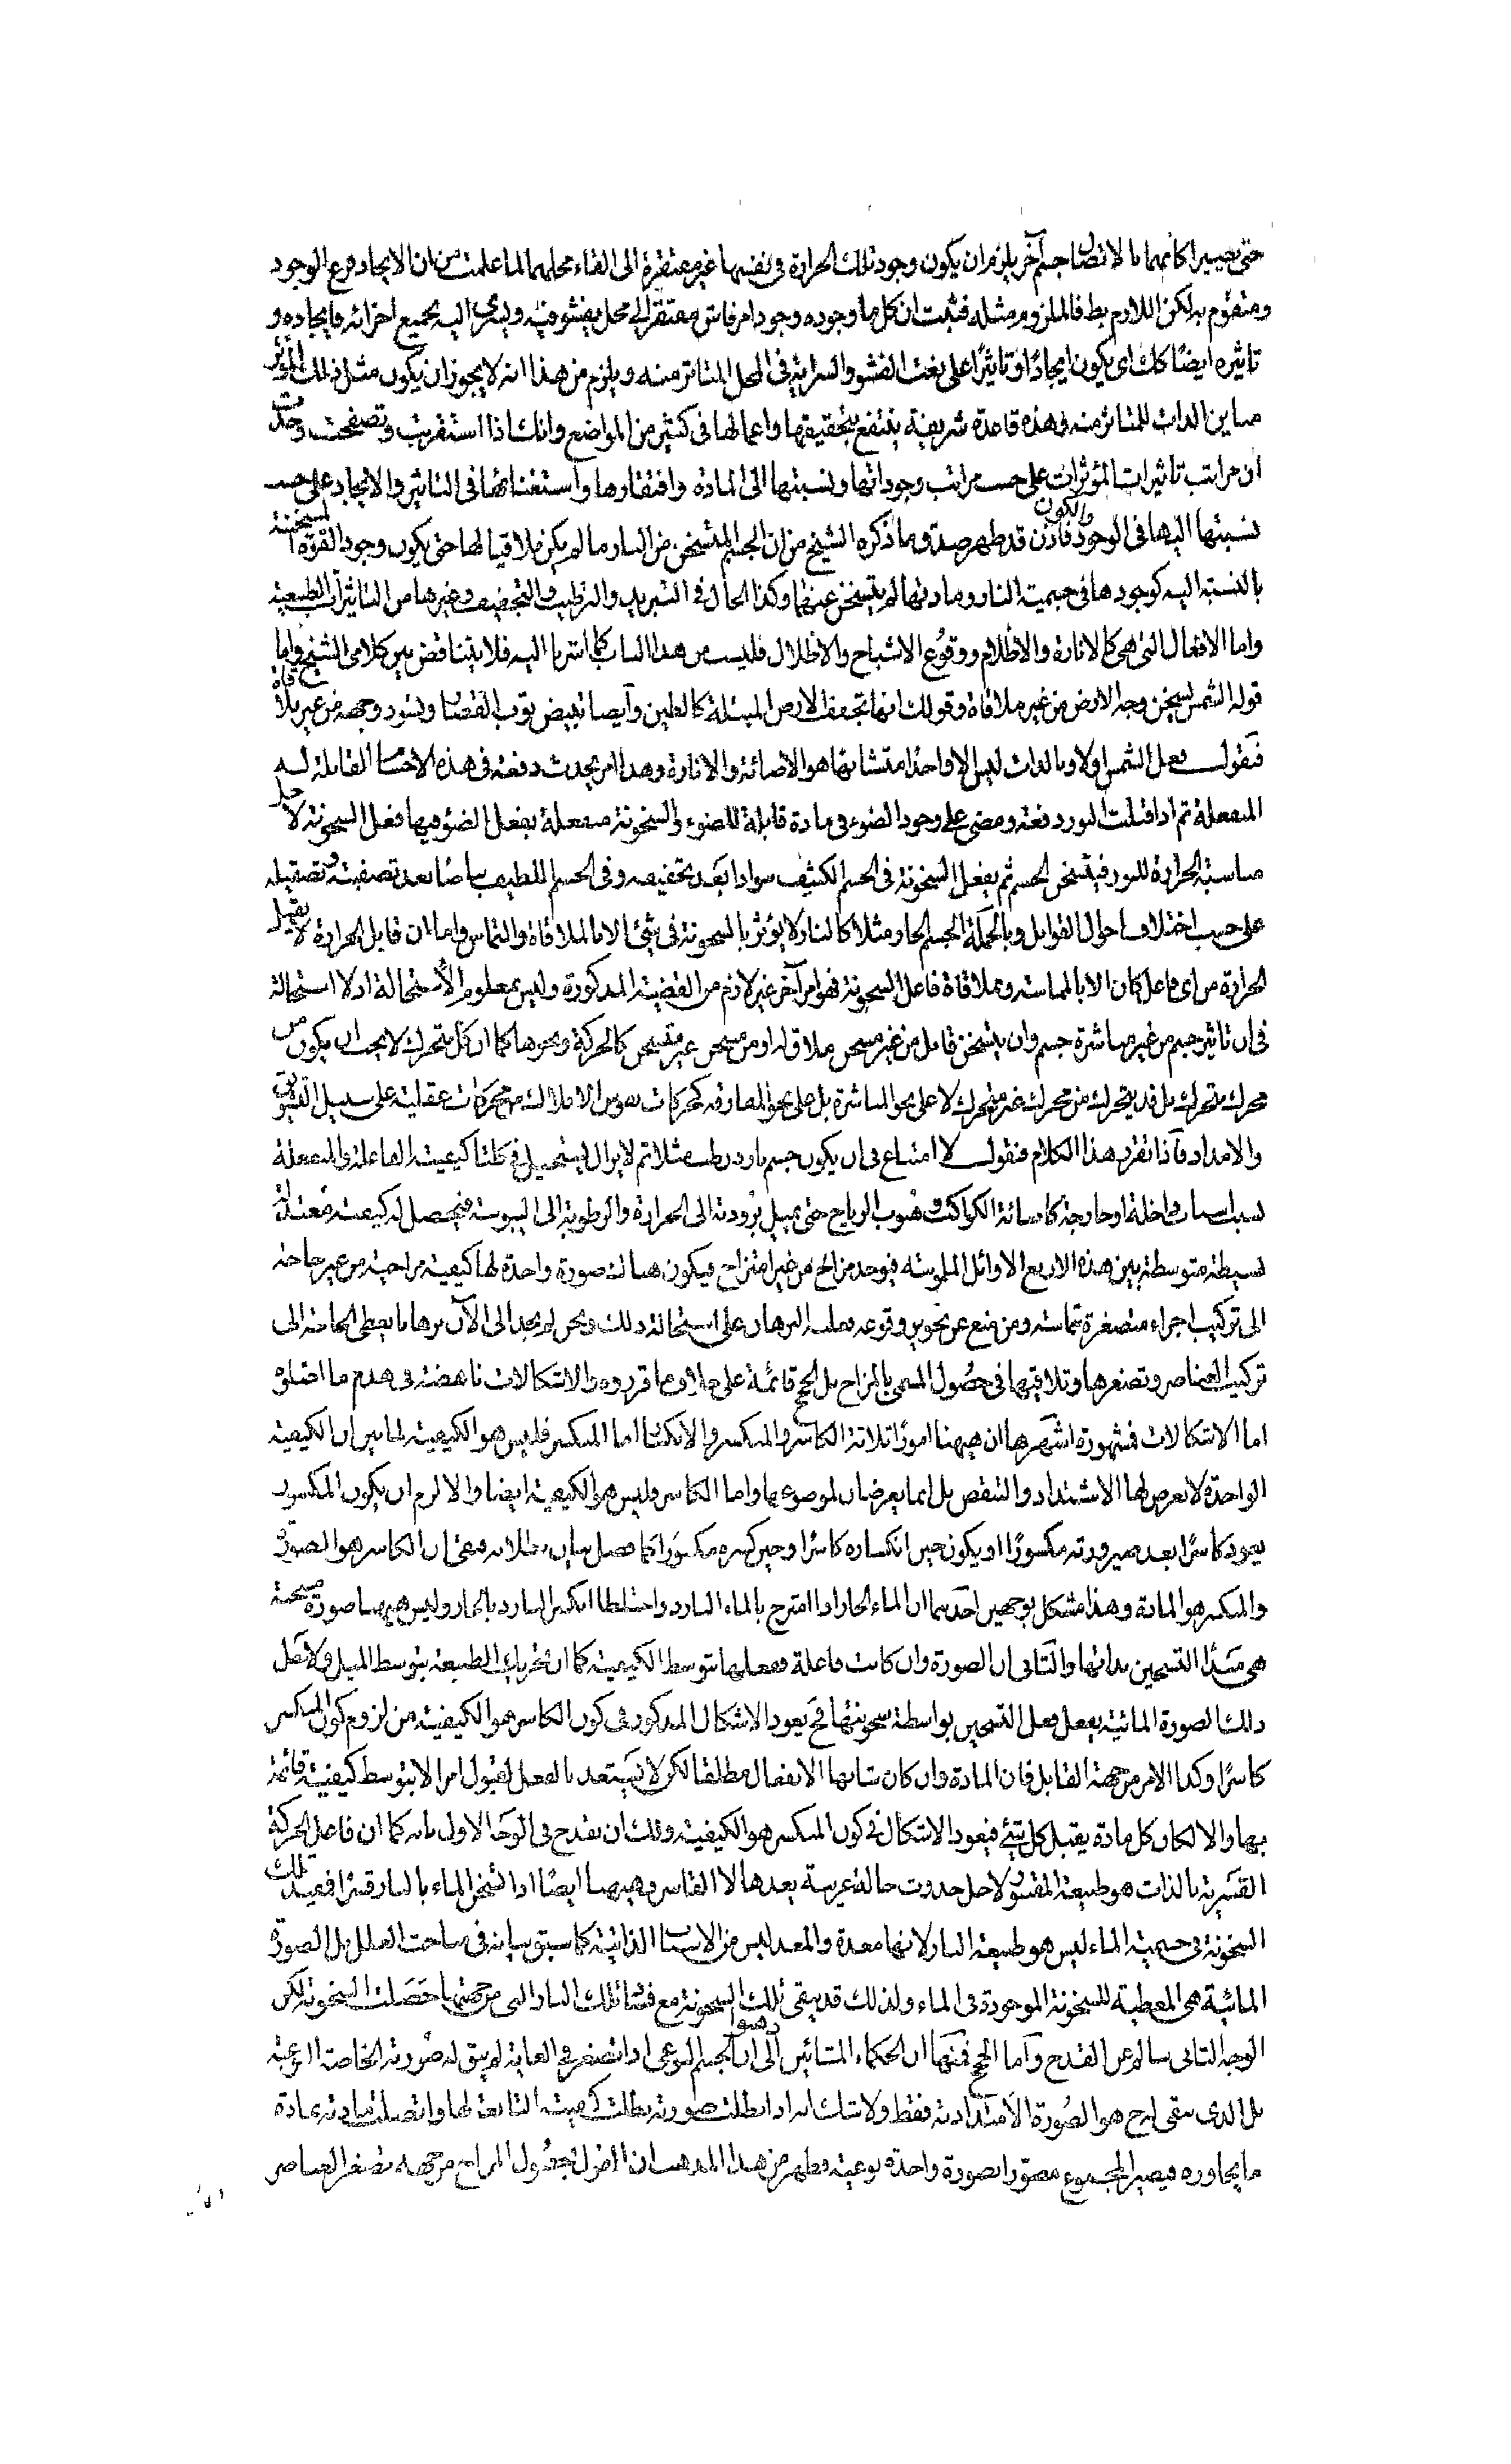 حتى يصيرا كأنهما بالاتصال جسم آخر يلزم ان يكون وجود تلك الحرارة فى نفسها غير مفتقرة الى القاء محلهما لما علمت من ان الايجاد فرع الوجود
ومتقوم به لكن اللازم بط فالملزوم مثله فثبت ان كل ما وجوده وجود امر فاش مفتقر الى محل يفشو فيه ويسرى اليه بجميع اجزائه فايجاده و
تاثيره ايضًا كك اى يكون ايجادًا او تاثيرًا على نعت الفشو والسراية فى المحل المتاثر منه ويلزم من هذا انه لا يجوز ان يكون مثل ذلك المؤثر
مباين الذات للمتاثر منه وهذه قاعدة شريفة ينتفع بتحقيقها واعمالها فى كثير من المواضع وانك اذا استقريت وتصفحت وجدت
ان مراتب تاثيرات المؤثرات على حسب مراتب وجوداتها ونسبتها الى المادة وافتقارها واستغنائها فى التاثير والايجاد على حسب
نسبتها اليها فى الوجود والكون فاذن قد ظهر صدق ما ذكره الشيخ من ان الجسم المتسخن من النار ما لم يكن ملاقيا لها حتى يكون وجود القوة المسخنة
بالنسبة اليه كوجودها فى جسمية النار ومادتها لم يتسخن عنها وكذا الحال فى التبريد والترطيب والتجفيف وغيرها من التاثيرات الطبيعية
واما الافعال التى هى كالانارة والاظلام ووقوع الاشباح والاظلال فليست من هذا الباب كما اشرنا اليه فلا يتناقض بين كلامى الشيخ واما
قوله الشمس تسخن وجه الارض من غير ملاقاة وقولك انها تجفف الارض المبتلة كالطين وايضا تبيض ثوب القصار وتسود وجهه من غير ملاقاة
فنقول فعل الشمس اولا وبالذات ليس الا واحدا متشابها هو الاضائة والانارة وهذا امر يحدث دفعة فى هذه الاجسام القابلة له
المنفعلة ثم اذا قبلت النور دفعة ومضى على وجود الضوء فى مادة قابلة للضوء والسخونة منفعلة بفعل الضوء فيها فعل السخونة لاجل
مناسبة الحرارة للنور فيتسخن الجسم ثم يفعل السخونة فى الجسم الكثيف سوادا بعد تجفيفه وفى الجسم اللطيف بياضا بعد تصفيته وتصقيله
على حسب اختلاف احوال القوابل وبالجملة الجسم الحار مثلا كالنار لا يؤثر بالسخونة فى شئ الا بالملاقاة والتماس واما ان قابل الحرارة لا يقبل
الحرارة من اى فاعل كان الا بالمماسة وملاقاة فاعل السخونة فهو امر آخر غير لازم من القضية المذكورة وليس بمعلوم الاستحالة اذ لا استحالة
فى ان تاثير جسم من غير مباشرة جسم وان يتسخن قابل من غير مسخن ملاق له او من مسخن غير متسخن كالحركة ونحوها كما ان كل متحرك لا يجب ان يكون من
محرك متحرك بل قد يتحرك من محرك غير متحرك لا على نحو المباشرة بل على نحو المفارقة كحركات نفوس الافلاك من محركات عقلية على سبيل التشويق
والامداد فاذا تقرر هذا الكلام فنقول لا امتناع فى ان يكون جسم بارد رطب مثلا ثم لا يزال يستحيل فى كلتا كيفيته الفاعلة والمنفعلة
بسبب اسباب داخلة او خارجة كاضائة الكواكب وهبوب الرياح حتى يميل برودته الى الحرارة والرطوبة الى اليبوسة فيحصل له كيفية معتدلة
بسيطة متوسطة بين هذه الاربع الاوائل الملموسة فيوجد مزاج من غير امتزاج فيكون هناك صورة واحدة لها كيفية مزاجية من غير حاجة
الى تركيب اجزاء متصغرة متماسة ومن منع عن تجويز وقوعه فعليه البرهان على استحالة ذلك ونحن لم نجد الى الآن برهانا يعطى الحاجة الى
تركيب العناصر وتصغرها وتلاقيها فى حصول المسمى بالمزاج بل الحجج قائمة على خلاف ما قرروه والاشكالات ناهضة فى هدم ما اصلوه
اما الاشكالات فمشهورة اشهرها ان هيهنا امورًا ثلاثة الكاسر والمنكسر والانكسار اما المنكسر فليس هو الكيفية لما مر ان الكيفية
الواحدة لا تعرض لها الاشتداد والتنقص بل انما يعرضان لموضوعها واما الكاسر فليس هو الكيفية ايضا والا لزم ان يكون المكسور
يعود كاسرًا بعد صيرورته مكسورًا او يكون حين انكساره كاسرا وحين كسره مكسورا كما فصل بيان بطلانه فبقى ان الكاسر هو الصورة
والمنكسر هو المادة وهذا مشكل بوجهين احدهما ان الماء الحار اذا امتزج بالماء البارد واختلطا انكسر البارد بالحار وليس هيهنا صورة مسخنة
هى مبدأ التسخين بذاتها والثانى ان الصورة وان كانت فاعلة ففعلها بتوسط الكيفية كما ان تحريك الطبيعة بتوسط الميل ولا تقل
ذلك الصورة المائية يفعل فعل التسخين بواسطة سخونتها فح يعود الاشكال المذكور فى كون الكاسر هو الكيفية من لزوم كون المنكسر
كاسرًا وكذا الامر من جهة القابل فان المادة وان كان شانها الانفعال مطلقا لكن لا يستعد بالفعل لقبول امر الا بتوسط كيفية قائمة
بها والا لكان كل مادة يقبل كل شئ فيعود الاشكال فى كون المنكسر هو الكيفية ولك ان تقدح فى الوجه الاول بانه كما ان فاعل الحركة
القسرية بالذات هو طبيعة المقسور لاجل حدوث حالة غريبة يعدها لا القاسر وهيهنا ايضًا اذا تسخن الماء بالنار قسرًا فمفيد تلك
السخونة فى جسمية الماء ليس هو طبيعة النار لانها معدة والمعد ليس من الاسباب الذاتية كما سبق بيانه فى مباحث العلل بل الصورة
المائية هى المعطية للسخونة الموجودة فى الماء ولذلك قد يبقى تلك السخونة مع فناء تلك النار التى من جهتها حصلت السخونة لكن
الوجه الثانى سالم عن القدح واما الحجج فمنها ان الحكماء المشائين ذهبوا الى ان الجسم النوعى اذا تصغر فى الغاية لم يبق له صورته الخاصة النوعية
بل الذى يبقى له ح هو الصورة الامتدادية فقط ولا شك انه اذا بطلت صورته بطلت كيفيته التابعة لها واتصلت مادته بمادة
ما يجاوره فيصير المجموع مصورا بصورة واحدة نوعية فظهر من هذا المذهب ان القول بحصول المزاج من جهة تصغر العناصر